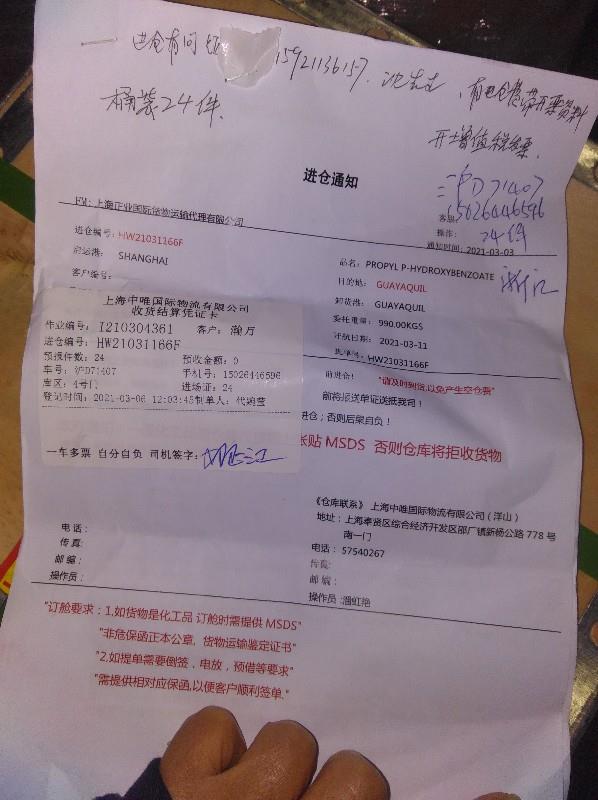 一 进仓有问 15921136157. 沈先生, 有进仓 带开票资料
桶装24件. 开增值税发票.
进仓通知
沪D71407
15026446596
24件
FM: 上海正业国际货物运输代理有限公司
客服:
操作:
通知时间: 2021-03-03
进仓编号: HW21031166F
启运港: SHANGHAI
客户编号:
品名: PROPYL P-HYDROXYBENZOATE
浙江
目的地: GUAYAQUIL
卸货港: GUAYAQUIL
委托重量: 990.00KGS
开航日期: 2021-03-11
HW21031166F
上海中唯国际物流有限公司
收货结算凭证卡
作业编号: I210304361 客户: 瀚万
进仓编号: HW21031166F
预报件数: 24 预收金额: 0
车号: 沪D71407 手机号: 15026446596
库区: 4号门 进场证: 24
登记时间: 2021-03-06 12:03:45制单人: 代晓莹
一车多票 自分自负 司机签字:
前进仓! "请及时到货,以免产生空仓费"
前将报送单证送抵我司!
进仓; 否则后果自负!
张贴 MSDS 否则仓库将拒收货物
《仓库联系》 上海中唯国际物流有限公司 (洋山)
地址: 上海奉贤区综合经济开发区邵厂镇新杨公路 778 号
南一门
电话: 57540267
传真:
邮编:
操作员:潘虹艳
电话:
传真:
邮编:
操作员:
"订舱要求: 1.如货物是化工品 订舱时需提供 MSDS"
"非危保函正本公章, 货物运输鉴定证书"
"2.如提单需要倒签, 电放, 预借等要求"
"需提供相对应保函,以便客户顺利签单."